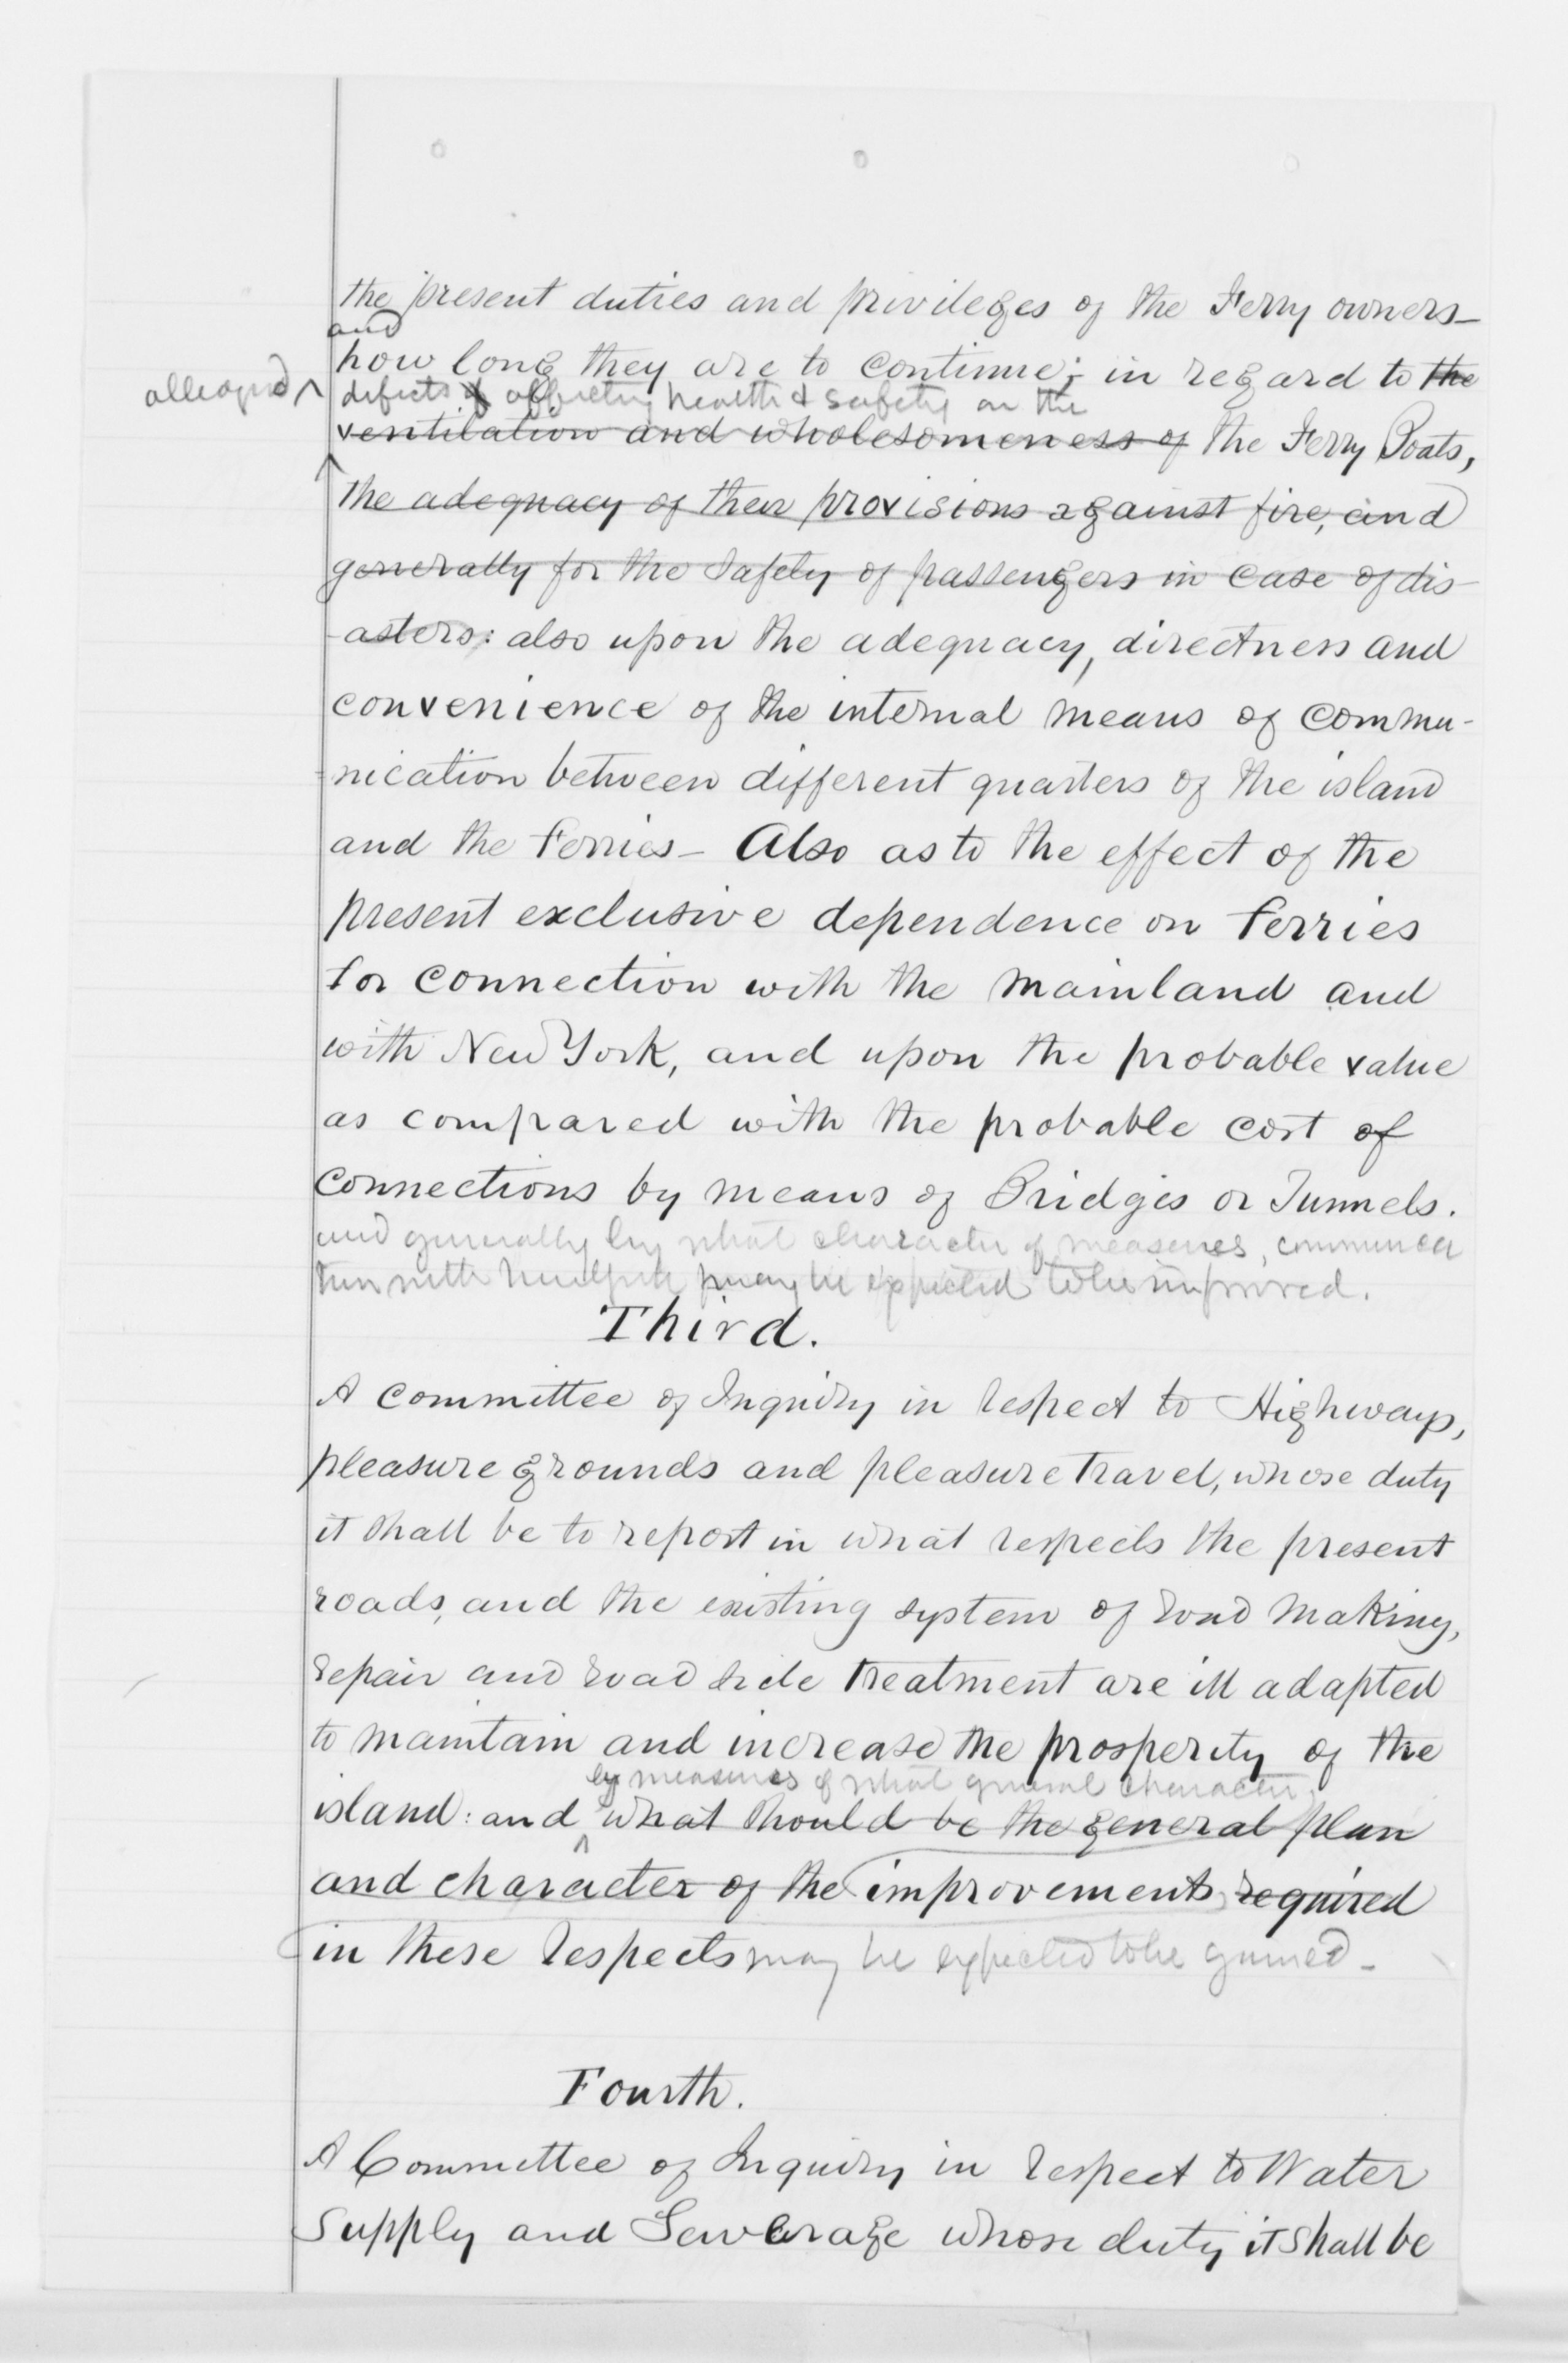 the present duties and privileges of the Ferry owners—
and
how long they are to continue; in regard to the
alleaged
defects of affecting health & safety on the
ventilation and wholesomeness of the Ferry Boats,
the adequacy of their provisions against fire, and
generally for the safety of passengers in case of dis-
-asters: also upon the adequacy, directness and
convenience of the internal means of commu-
=nication between different quarters of the island
and the Ferries— Also as to the effect of the
present exclusive dependence on Ferries
for connection with the mainland and
with New York, and upon the probable value
as compared with the probable cost of
connections by means of Bridges or Tunnels.
and generally by what character of measures, communica
tion with may be expected to be improved.
Third.
A committee of Inquiry in respect to Highways,
pleasure grounds and pleasure travel, whose duty
it shall be to report in what respects the present
roads, and the existing system of road making,
repair and road side treatment are ill adapted
to maintain and increase the prosperity of the
by measures of what general character
island: and what should be the general plan
and character of the improvements required
in these respects may be expected to be gained—
Fourth.
A Committee of Inquiry in respect to Water
Supply and Sewerage whose duty it shall be